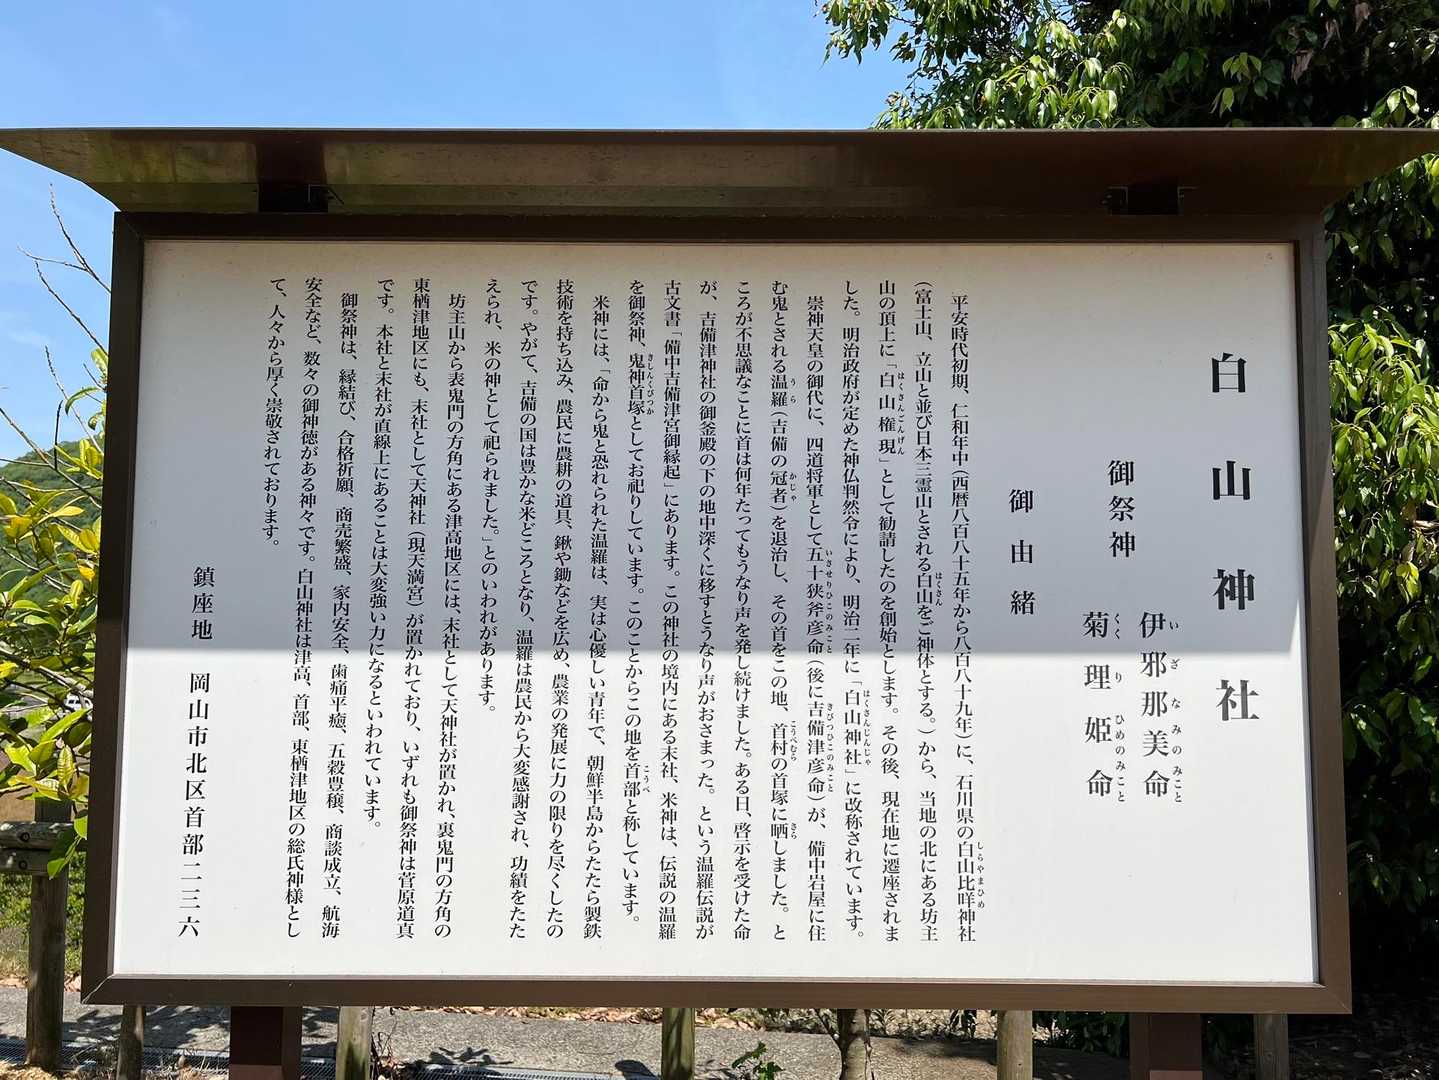 白山神社
御祭神
伊邪那美命
いざなみのみこと
菊理姫命
くくりひめのみこと
御由緒
平安時代初期、仁和年中（西暦八百八十五年から八百八十九年）に、石川県の白山比咩神社
しらやまひめ
（富士山、立山と並び日本三霊山とされる白山をご神体とする。）から、当地の北にある坊主
はくさん
山の頂上に「白山権現」として勧請したのを創始とします。その後、現在地に遷座されま
はくさんごんげん
した。明治政府が定めた神仏判然令により、明治二年に「白山神社」に改称されています。
はくさんじんじゃ
崇神天皇の御代に、四道将軍として五十狭斧彦命（後に吉備津彦命）が、備中岩屋に住
いさせりひこのみこと
きびつひこのみこと
む鬼とされる温羅（吉備の冠者）を退治し、その首をこの地、首村の首塚に晒しました。と
うら
かじゃ
こうべむら
さら
ころが不思議なことに首は何年たってもうなり声を発し続けました。ある日、啓示を受けた命
が、吉備津神社の御釜殿の下の地中深くに移すとうなり声がおさまった。という温羅伝説が
古文書「備中吉備津宮御縁起」にあります。この神社の境内にある末社、米神は、伝説の温羅
を御祭神、鬼神首塚としてお祀りしています。このことからこの地を首部と称しています。
きしんくびつか
こうべ
米神には、「命から鬼と恐れられた温羅は、実は心優しい青年で、朝鮮半島からたたら製鉄
技術を持ち込み、農民に農耕の道具、鍬や鋤などを広め、農業の発展に力の限りを尽くしたの
です。やがて、吉備の国は豊かな米どころとなり、温羅は農民から大変感謝され、功績をたた
えられ、米の神として祀られました。」とのいわれがあります。
坊主山から表鬼門の方角にある津高地区には、末社として天神社が置かれ、裏鬼門の方角の
東楢津地区にも、末社として天神社（現天満宮）が置かれており、いずれも御祭神は菅原道真
です。本社と末社が直線上にあることは大変強い力になるといわれています。
御祭神は、縁結び、合格祈願、商売繁盛、家内安全、歯痛平癒、五穀豊穣、商談成立、航海
安全など、数々の御神徳がある神々です。白山神社は津高、首部、東楢津地区の総氏神様とし
て、人々から厚く崇敬されております。
鎮座地　岡山市北区首部二三六